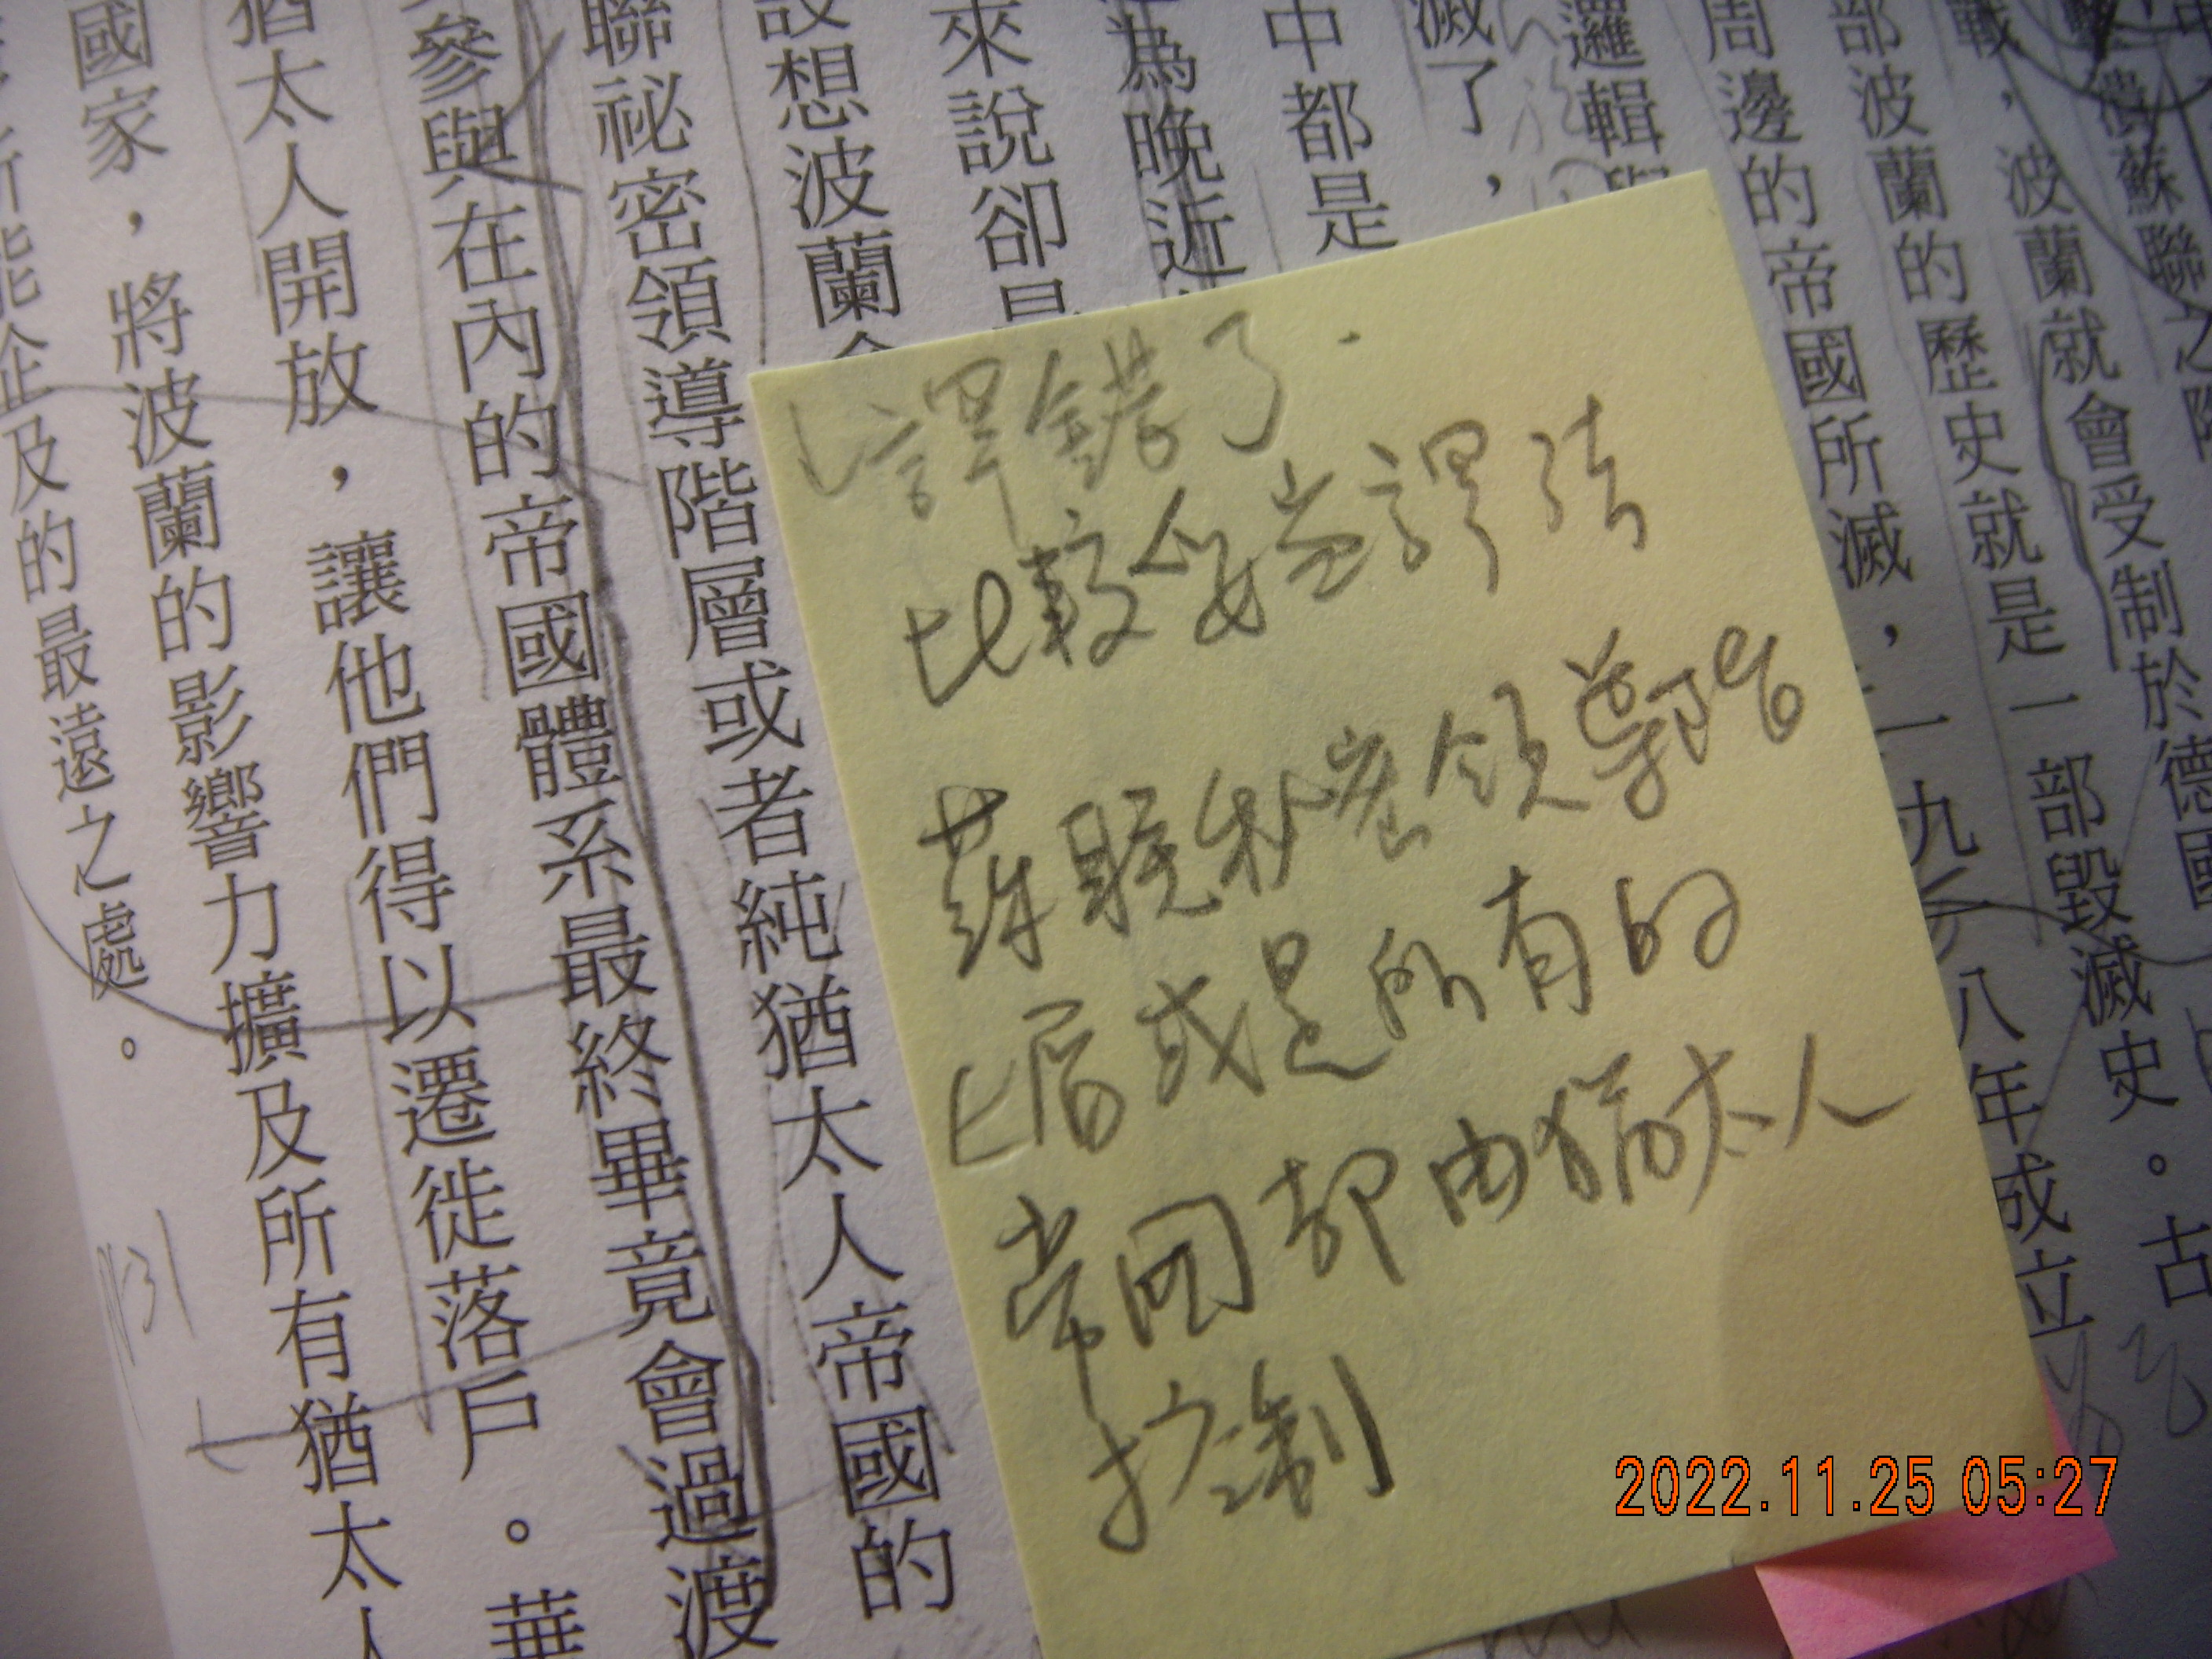 蘇聯之
戰，波蘭就會受制於德國
部波蘭的歷史就是一部毀滅史。古
周邊的帝國所滅，一九一八年成立
邏輯
滅了，
中都是
為晚近
來說卻
設想波蘭
聯祕密領導階層或者純猶太人帝國的
參與在內的帝國體系最終畢竟會過渡
猶太人開放，讓他們得以遷徙落戶。華
國家，將波蘭的影響力擴及所有猶太人
所能企及的最遠之處。
譯錯了.
比較妥當譯法
蘇聯秘密領導階
層或是所有的
帝国都由猶太人
控制
2022.11.25 05:27